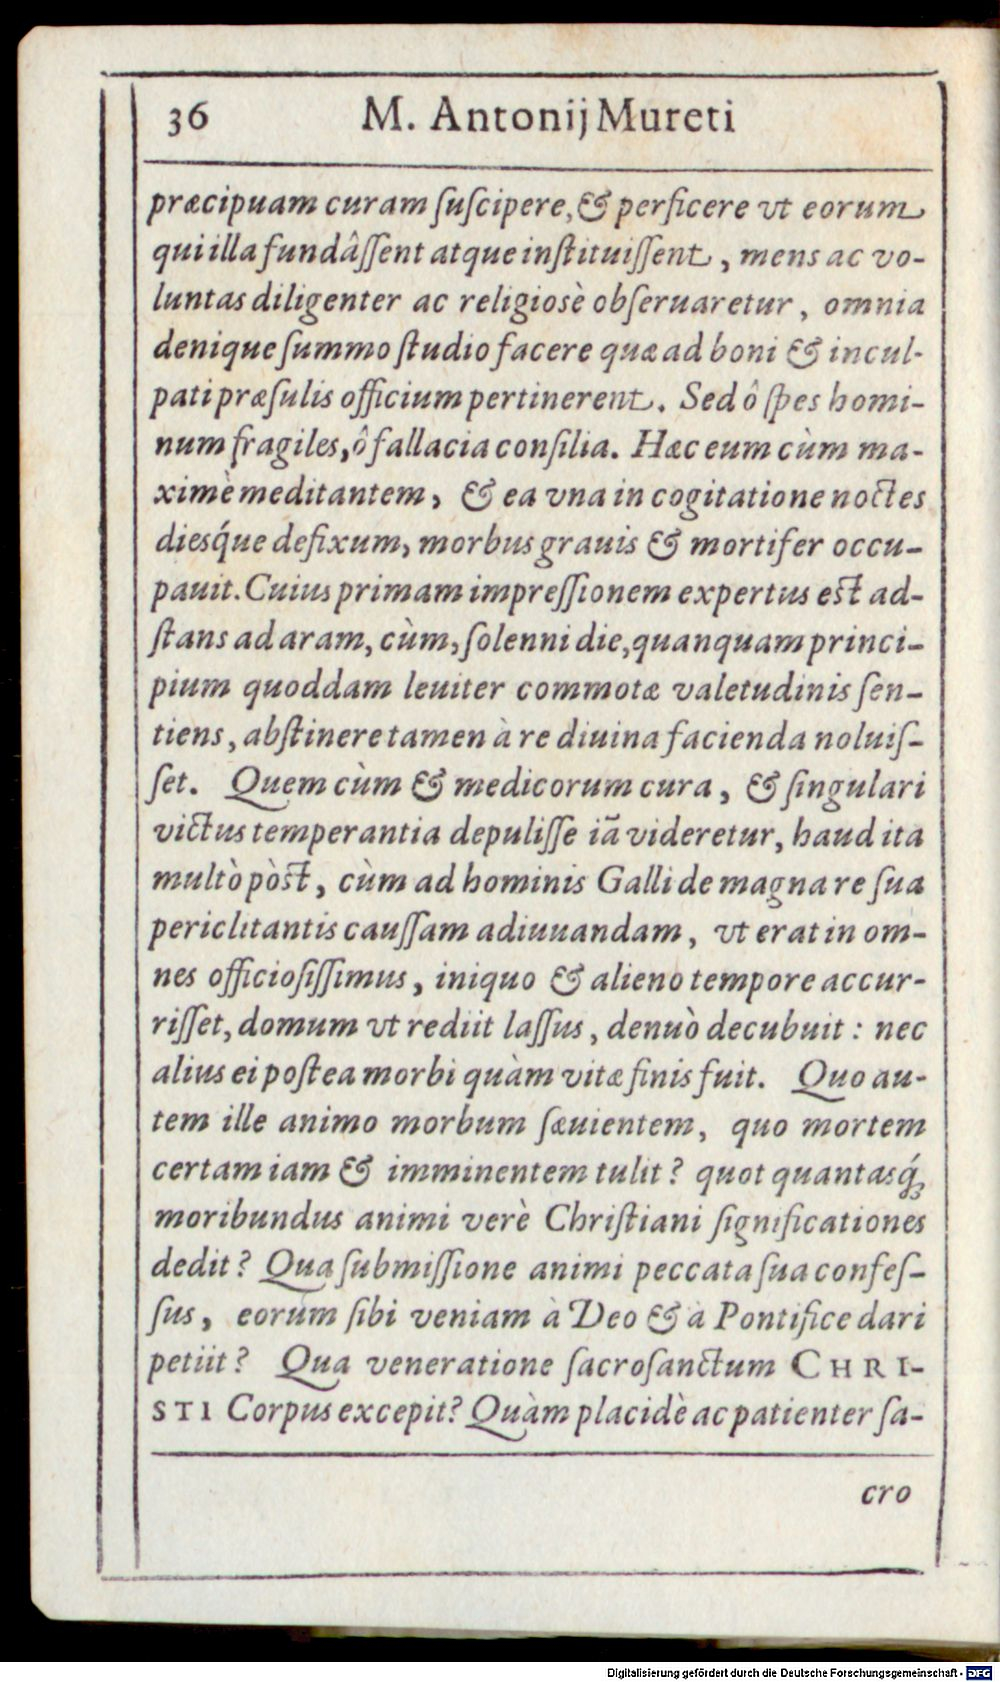 36 M. Antonij Mureti
præcipuam curam ſuſcipere, & perficere vt eorum
qui illa fundâſſent atque inſtituiſſent, mens ac vo-
luntas diligenter ac religiosè obſeruaretur, omnia
denique ſummo ſtudio facere quæ ad boni & incul-
pati præſulis officium pertinerent. Sed ô ſpes homi-
num fragiles, ô fallacia conſilia. Hæc eum cùm ma-
ximè meditantem, & ea vna in cogitatione noctes
diesq́ue defixum, morbus grauis & mortifer occu-
pauit. Cuius primam impreſſionem expertus est ad-
ſtans ad aram, cùm, ſolenni die, quanquam princi-
pium quoddam leuiter commotæ valetudinis ſen-
tiens, abſtinere tamen à re diuina facienda noluiſ-
ſet. Quem cùm & medicorum cura, & ſingulari
victus temperantia depuliſſe iã videretur, haud ita
multò pòst, cùm ad hominis Galli de magna re ſua
periclitantis cauſſam adiuuandam, vt erat in om-
nes officioſiſſimus, iniquo & alieno tempore accur-
riſſet, domum vt rediit laſſus, denuò decubuit: nec
alius ei poſtea morbi quàm vitæ finis fuit. Quo au-
tem ille animo morbum ſæuientem, quo mortem
certam iam & imminentem tulit? quot quantasq́;
moribundus animi verè Chriſtiani ſignificationes
dedit? Qua ſubmiſſione animi peccata ſua confeſ-
ſus, eorum ſibi veniam à Deo & à Pontifice dari
petiit? Qua veneratione ſacroſanctum CHRI-
STI Corpus excepit? Quàm placidè ac patienter ſa-
cro
Digitalisierung gefördert durch die Deutsche Forschungsgemeinschaft - DFG